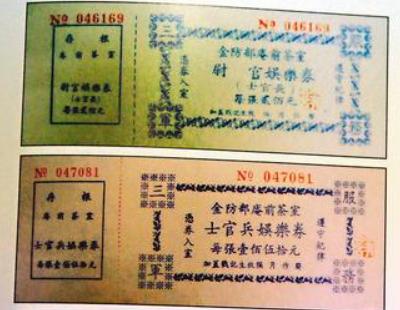 № 046169
存根
菴前茶室
尉官娛樂券
(士官長)
每張貳佰元
№ 046169
三軍
憑券入室
金防部菴前茶室
尉官娛樂券
(士官長)
每張貳佰元
遵守紀律
服務
№ 047081
存根
菴前茶室
士官兵娛樂券
每張壹佰伍拾元
№ 047081
三軍
憑券入室
金防部菴前茶室
士官兵娛樂券
每張壹佰伍拾元
遵守紀律
服務